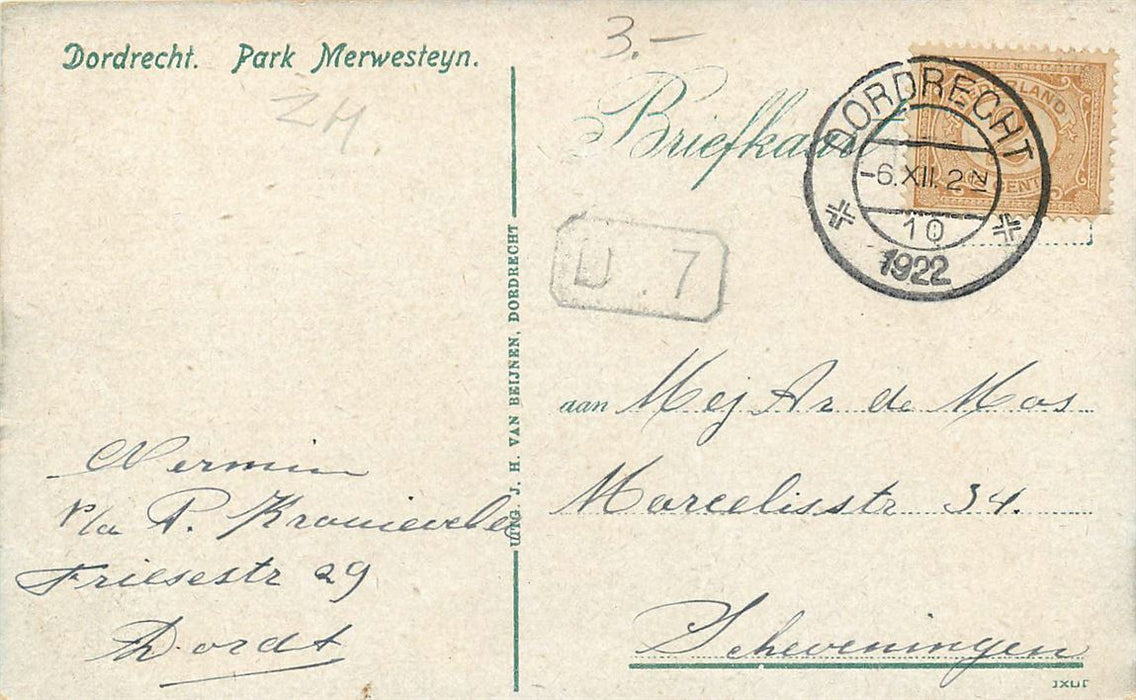 Dordrecht. Park Merwesteyn.
ZH
3.-
Briefkaart
DORDRECHT
-6.XII. 2 N
10
1922
CENT
7
UITG. J. H. VAN BEIJNEN, DORDRECHT
aan Mej Ar de Mos
Marcelisstr 34.
Scheveningen
p/a P.
Friesestr 29
Dordt